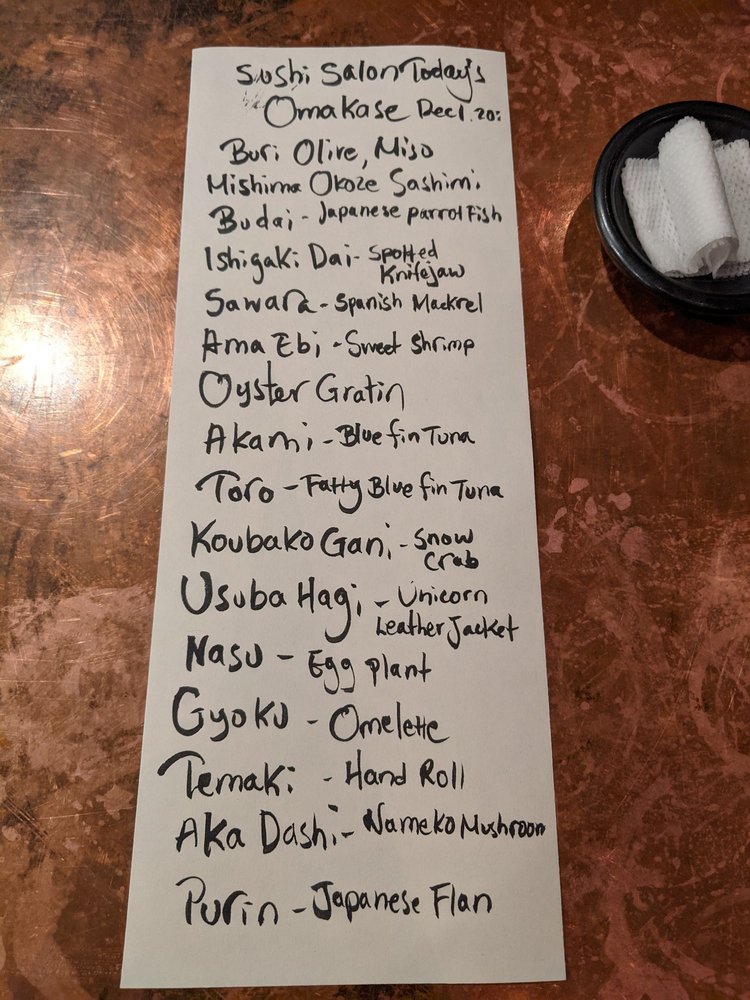 Sushi Salon Today's
Omakase Dec1.20:
Buri Olive, Miso
Mishima Okoze Sashimi
Budai - Japanese parrot Fish
Ishigaki Dai - Spotted
Knifejaw
Sawara - Spanish Mackrel
Ama Ebi - Sweet Shrimp
Oyster Gratin
Akami - Blue fin Tuna
Toro - Fatty Blue fin Tuna
Koubako Gani - Snow
Crab
Usuba Hagi - Unicorn
Leather Jacket
Nasu - Egg plant
Gyoku - Omelette
Temaki - Hand Roll
Aka Dashi - Nameko Mushroom
Purin - Japanese Flan